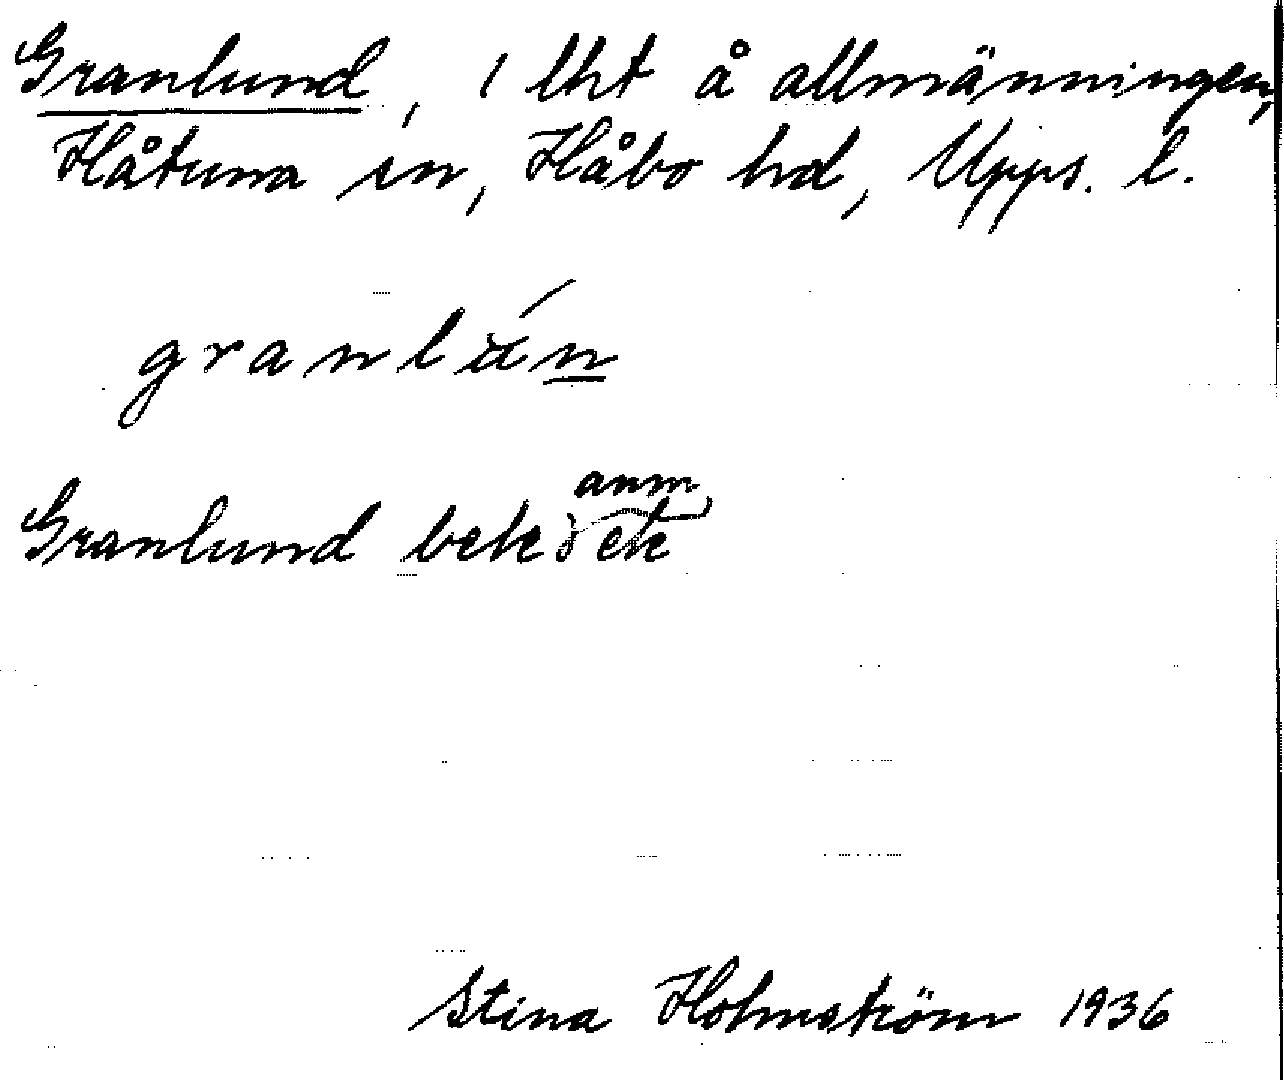 Granlund, 1 lht å allmänningen,
Håtuna sn, Håbo hd, Upps. l.
granlún
anm
Granlund bek ek
Stina Holmström 1936